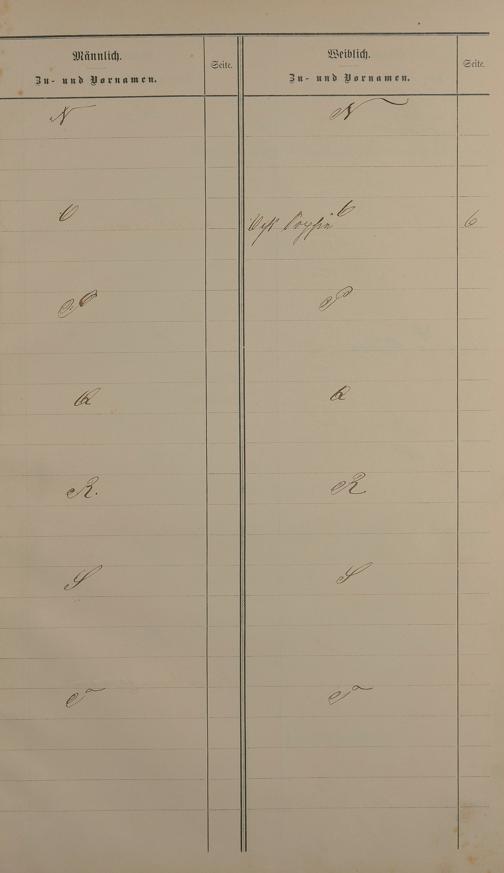 Männlich.
Zu- und Vornamen.
Seite.
N
O
P
Q
R.
S
T
Weiblich.
Zu- und Vornamen.
Seite.
N
O
6
P
Q
R
S
T